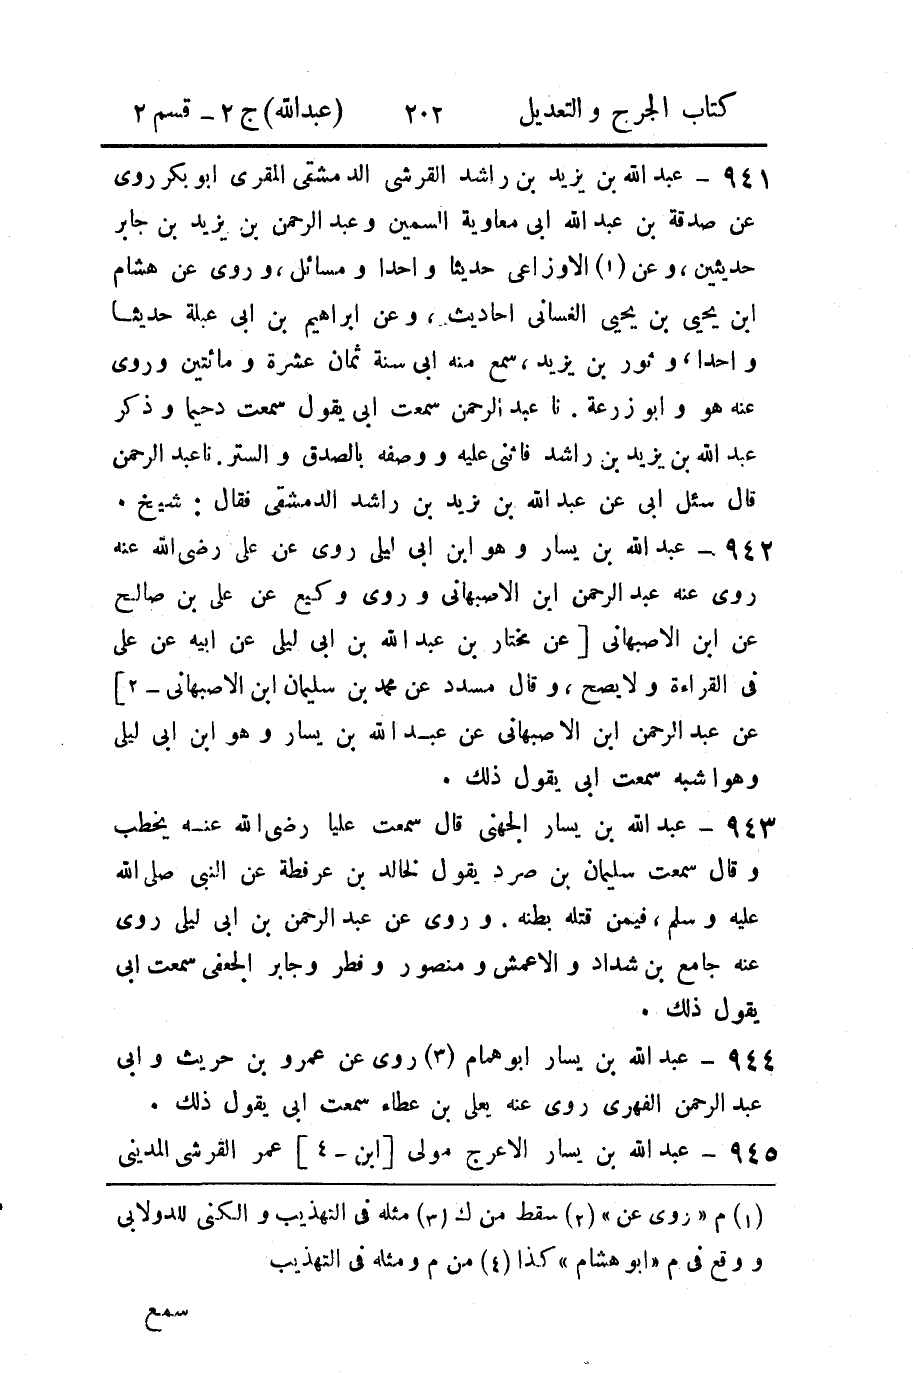 كتاب الجرح و التعديل ٢٠٢ (عبدالله) ج ٢ - قسم ٢
٩٤١ - عبد الله بن يزيد بن راشد القرشى الدمشقى المقرى ابو بكر روى
عن صدقة بن عبد الله ابى معاوية السمين و عبد الرحمن بن يزيد بن جابر
حديثين ، و عن (١) الاوزاعى حديثا و احدا و مسائل ، و روى عن هشام
ابن يحيى بن يحيى الغسانى احاديث ، و عن ابراهيم بن ابى عبلة حديثا
و احدا ، و ثور بن يزيد ، سمع منه ابى سنة ثمان عشرة و مائتين وروى
عنه هو و ابو زرعة . نا عبد الرحمن سمعت ابى يقول سمعت دحيما و ذكر
عبد الله بن يزيد بن راشد فاثنى عليه و وصفه بالصدق و الستر . نا عبد الرحمن
قال سئل ابى عن عبد الله بن يزيد بن راشد الدمشقى فقال : شيخ .
٩٤٢ - عبد الله بن يسار و هو ابن ابى ليلى روى عن على رضى الله عنه
روى عنه عبد الرحمن ابن الاصبهانى و روى وكيع عن على بن صالح
عن ابن الاصبهانى [ عن مختار بن عبد الله بن ابى ليلى عن ابيه عن على
فى القراءة و لايصح ، و قال مسدد عن محمد بن سليمان ابن الاصبهانى - ٢ ]
عن عبد الرحمن ابن الاصبهانى عن عبد الله بن يسار و هو ابن ابى ليلى
وهو اشبه سمعت ابى يقول ذلك .
٩٤٣ - عبد الله بن يسار الجهنى قال سمعت عليا رضى الله عنه يخطب
و قال سمعت سليمان بن صرد يقول لخالد بن عرفطة عن النبى صلى الله
عليه و سلم ، فيمن قتله بطنه . و روى عن عبد الرحمن بن ابى ليلى روى
عنه جامع بن شداد و الاعمش و منصور و فطر وجابر الجعفى سمعت ابى
يقول ذلك .
٩٤٤ - عبد الله بن يسار ابو همام (٣) روى عن عمرو بن حريث و ابى
عبد الرحمن الفهرى روى عنه يعلى بن عطاء سمعت ابى يقول ذلك .
٩٤٥ - عبد الله بن يسار الاعرج مولى [ ابن - ٤ ] عمر القرشى المدينى
(١) م « زوى عن » (٢) سقط من ك (٣) مثله فى التهذيب و الكنى للدولابى
و وقع فى م « ابو هشام » كذا (٤) من م و مثله فى التهذيب
سمع